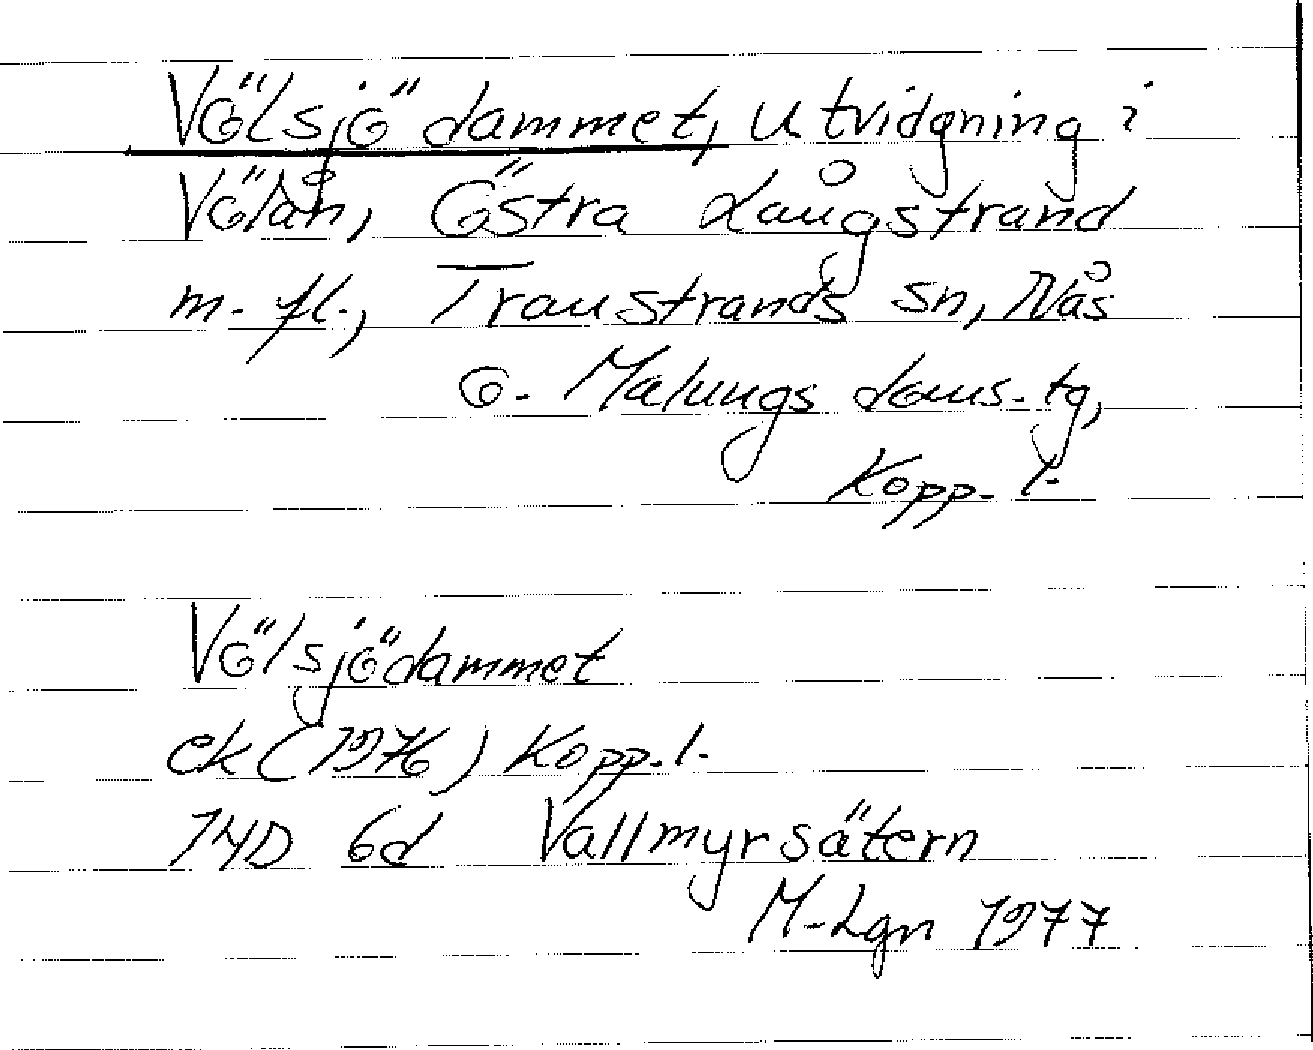 Völsjödammet, utvidgning i
Völån, Östra Långstrand
m. fl., Transtrands sn, Nås
o. Malungs doms. tg,
Kopp. l.
Völsjödammet
ek (1976) Kopp. l.
14D 6d Vallmyrsätern
M-Lgn 1977